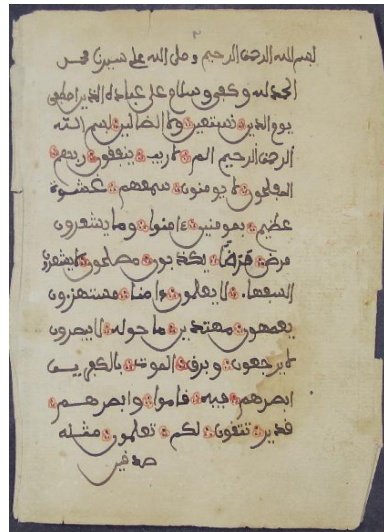 بسم الله الرحمن الرحيم وصلى الله على سيدنا محمد
الحمد لله وكفى وسلام على عباده الذين اصطفى
يوم الدين نستعين ولا الضالين بسم الله
الرحمن الرحيم الم لا ريب ينفقون ربهم
المفلحون لا يومنون سمعهم غشوة
عظيم بمومنين ءامنوا وما يشعرون
مرض مرضا يكذبون مصلحون لا يشعرون
السفهاء لا يعلمون ءامنا مستهزون
يعمهون مهتدين ما حوله لا يبصرون
لا يرجعون وبرق الموت بالكفرين
ابصرهم فيه قاموا وابصرهم
قدير تتقون لكم تعلمون مثله
صدقين